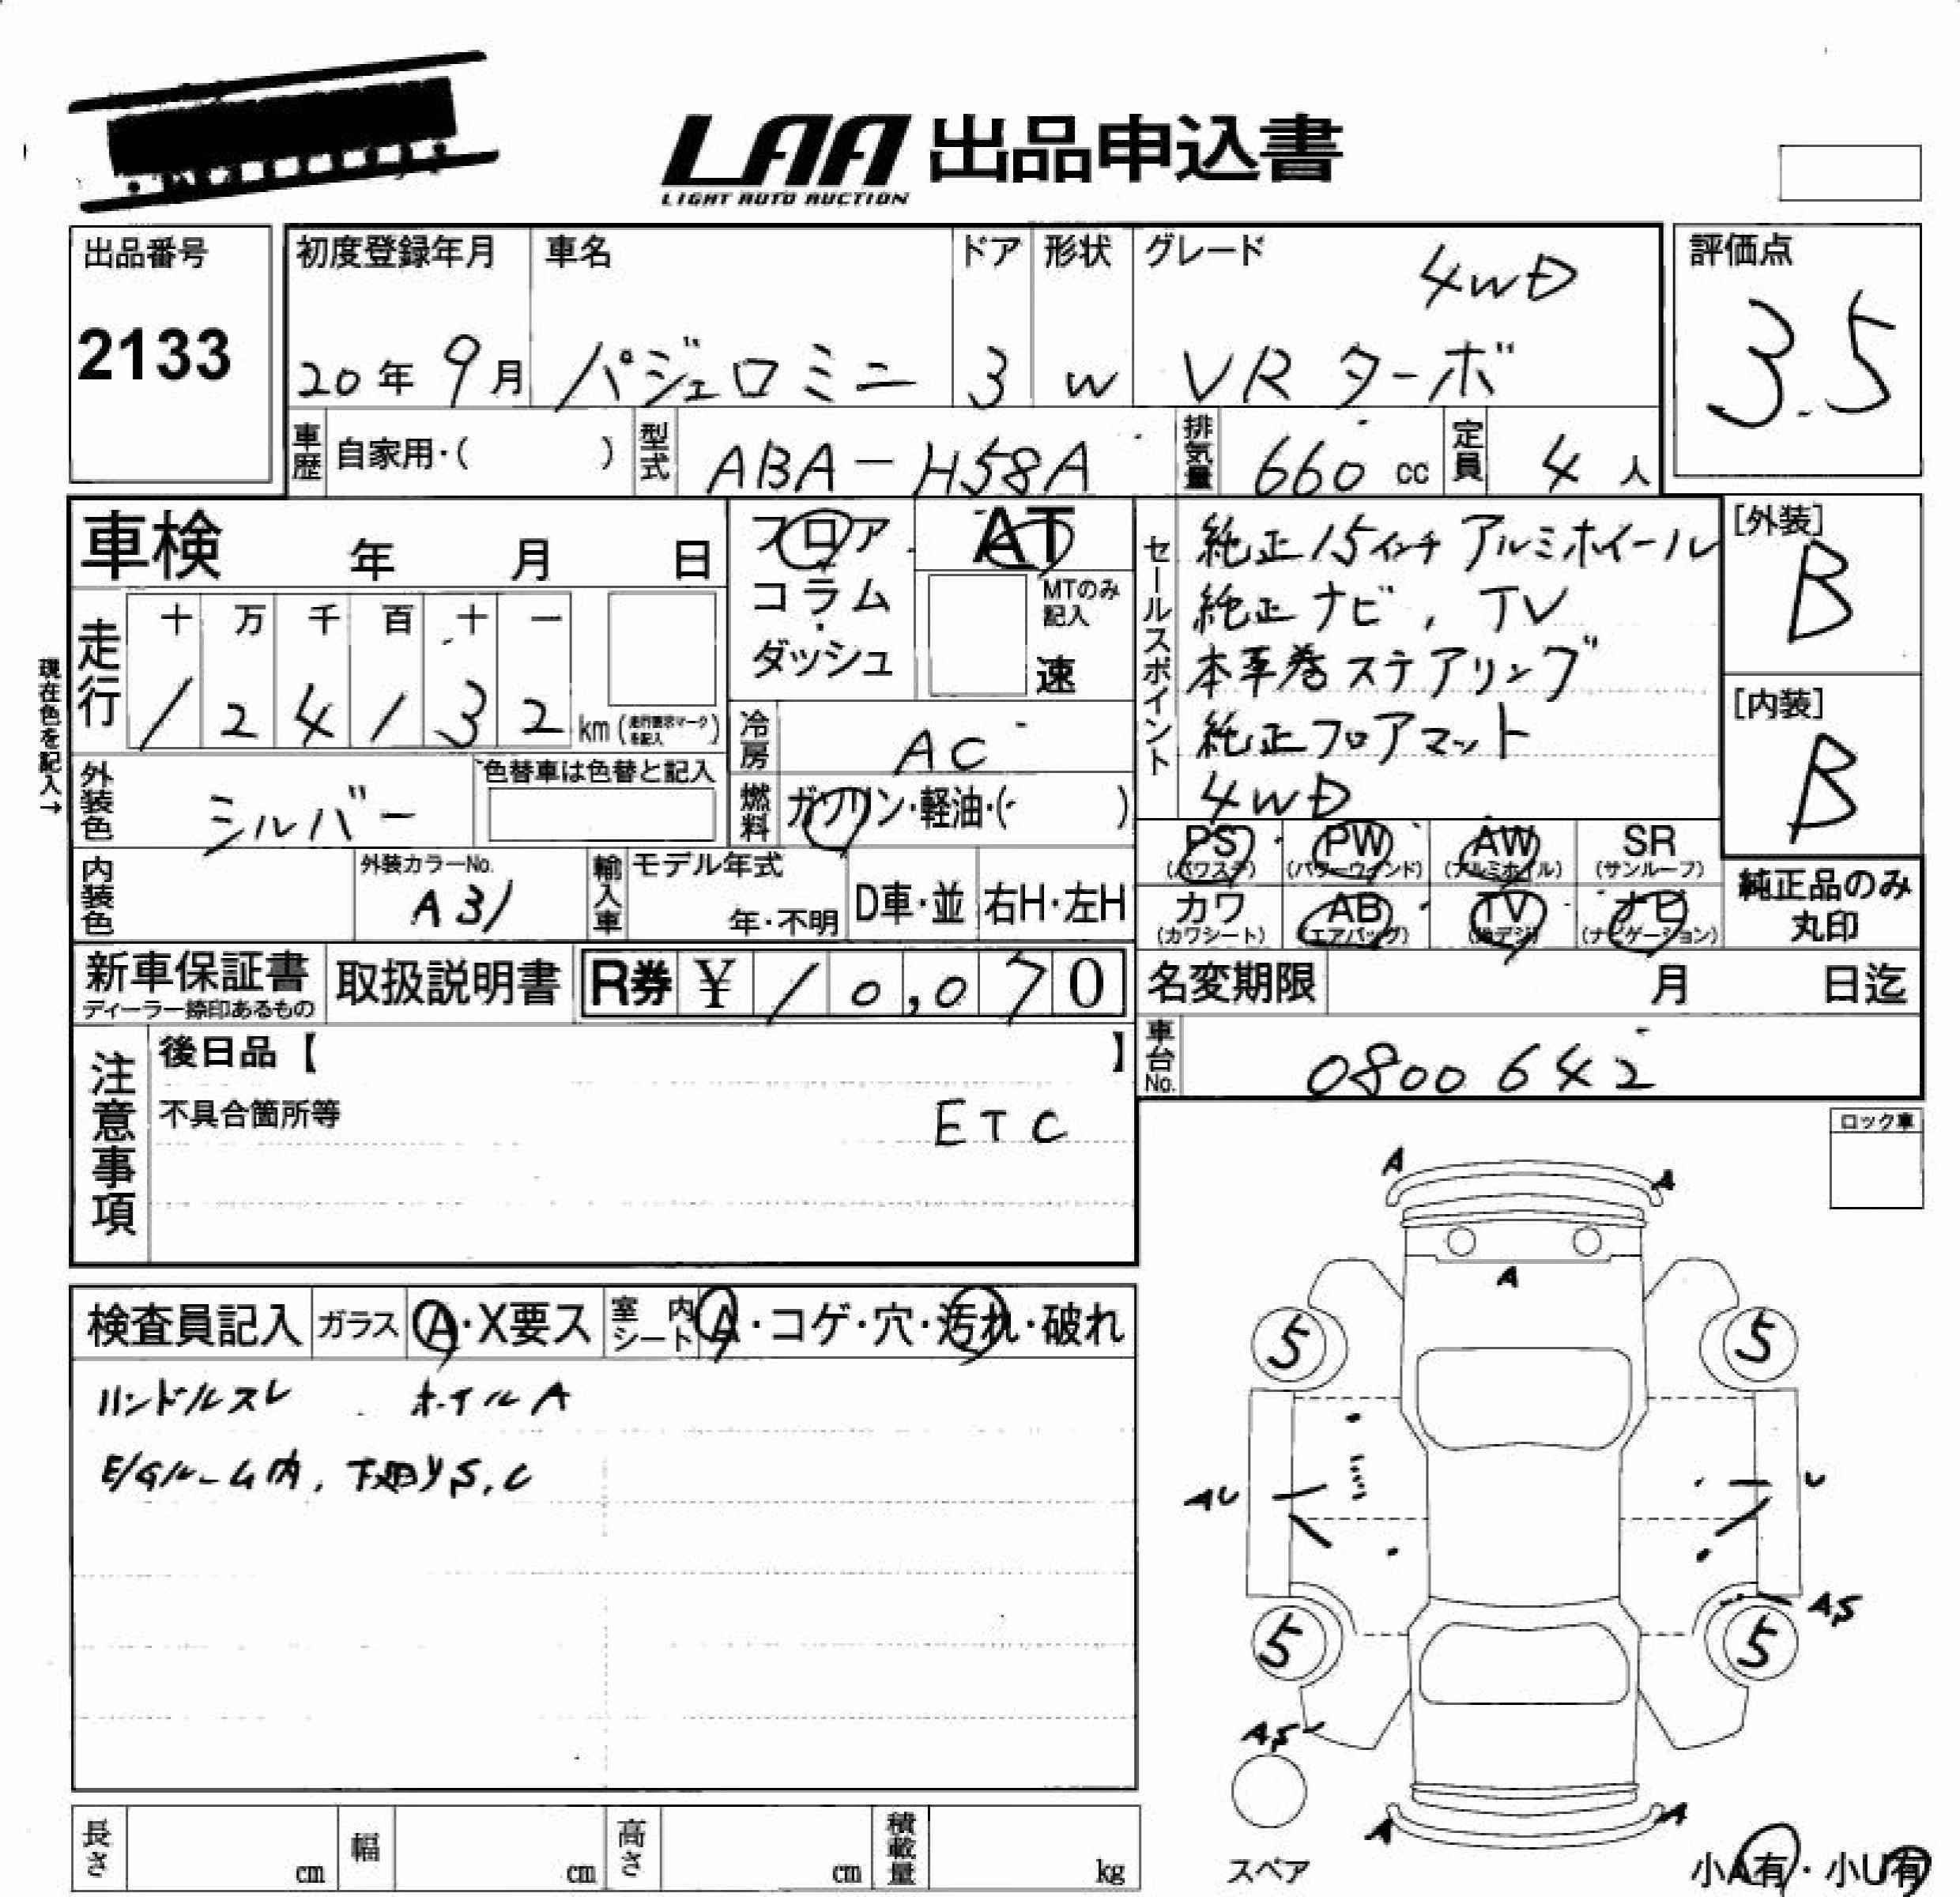 LAA 出品申込書
LIGHT AUTO AUCTION
出品番号
2133
初度登録年月
20年 9月
車名
パジェロミニ
ドア
3
形状
W
グレード
4WD
VR ターボ
評価点
3.5
車歴
自家用・( )
型式
ABA-H58A
排気量
660 cc
定員
4 人
車検 年 月 日
フロア
コラム
ダッシュ
AT
MTのみ
記入
速
セールスポイント
純正15インチ アルミホイール
純正ナビ, TV
本革巻ステアリング
純正フロアマット
4WD
[外装]
B
[内装]
B
現在色を記入→
走行
十 万 千 百 十 一
1 2 4 1 3 2 km
冷房
AC
燃料
ガソリン・軽油・( )
外装色
シルバー
色替車は色替と記入
内装色
外装カラーNo.
A31
輸入車
モデル年式
年・不明
D車・並
右H・左H
PS
(パワステ)
PW
(パワーウインド)
AW
(アルミホイル)
SR
(サンルーフ)
カワ
(カワシート)
AB
(エアバッグ)
TV
(地デジ)
ナビ
(ナビゲーション)
純正品のみ
丸印
新車保証書
ディーラー捺印あるもの
取扱説明書
R券 ¥ 10,070
名変期限 月 日迄
車台No.
0800642
注意事項
後日品【 】
不具合箇所等
ETC
ロック車
検査員記入
ガラス
A・X要ス
室内シート
A・コゲ・穴・汚れ・破れ
ハンドルスレ ホイルA
E/Gルーム内, 下廻りS,C
A
A
A
5
5
AU
U
5
5
AS
AS
スペア
A
A
長さ cm
幅 cm
高さ cm
積載量 kg
小A有・小U有